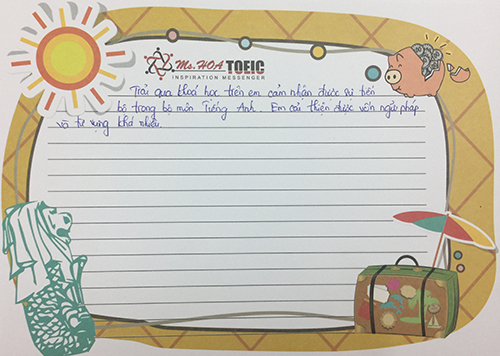 Ms.HOA TOEIC
INSPIRATION MESSENGER
Trải qua khoá học trên em cảm nhận được sự tiến
bộ trong bộ môn Tiếng Anh. Em cải thiện được vốn ngữ pháp
và từ vựng khá nhiều.